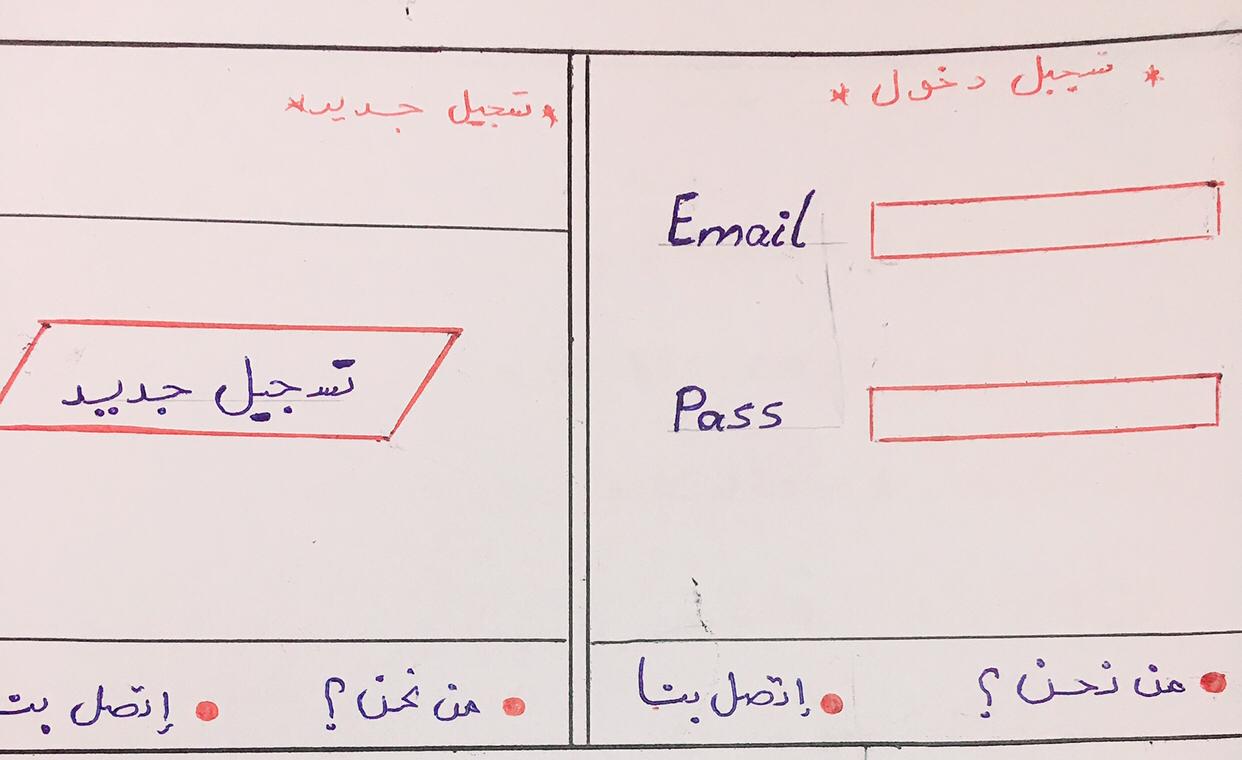 * تسجيل دخول *
Email
Pass
من نحن؟
إتصل بنا
*تسجيل جديد*
تسجيل جديد
من نحن؟
إتصل